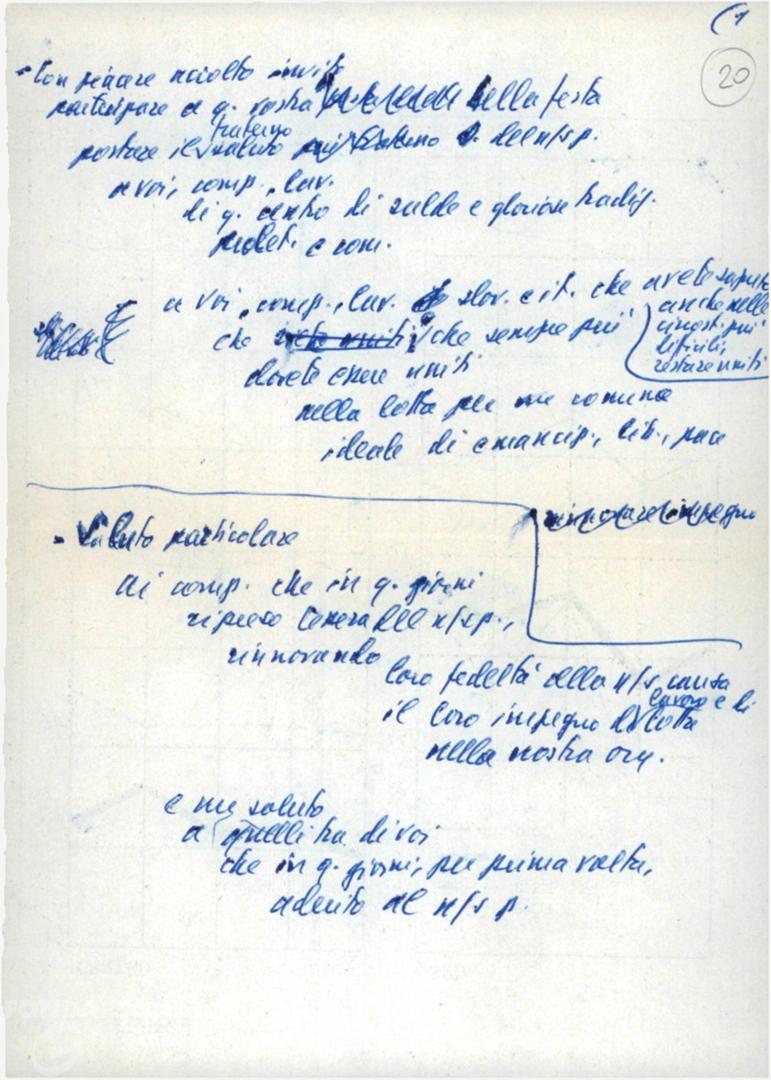 (1
20
- Con piacere accolto invito
partecipare a q. vostra bella festa
fraterno
portare il saluto del n/s p.
a voi, comp., lav.
di q. centro di salde e gloriose tradiz.
prolet. e com.
a voi, comp., lav. slov. e it. che avete saputo
anche nelle
momenti più
difficili,
restare uniti
che siete uniti, che sempre più
dovete essere uniti
nella lotta per un comune
ideale di emancip., lib., pace
rinnovare impegno
- Saluto particolare
ai comp. che in q. giorni
ripreso tessera del n/s p.,
rinnovando
loro fedeltà alla n/s causa
lavoro e di
il loro impegno di lotta
nella nostra org.
e un saluto
a quelli tra di voi
che in q. giorni, per prima volta,
aderito al n/s p.